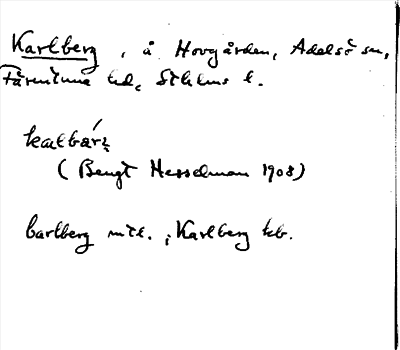 Karlberg, å Hovgården, Adelsö sn,
Färentuna hd, Sthlms l.
(Bengt Hesselman 1908)
Karlberg mtl. ; Karlberg kb.